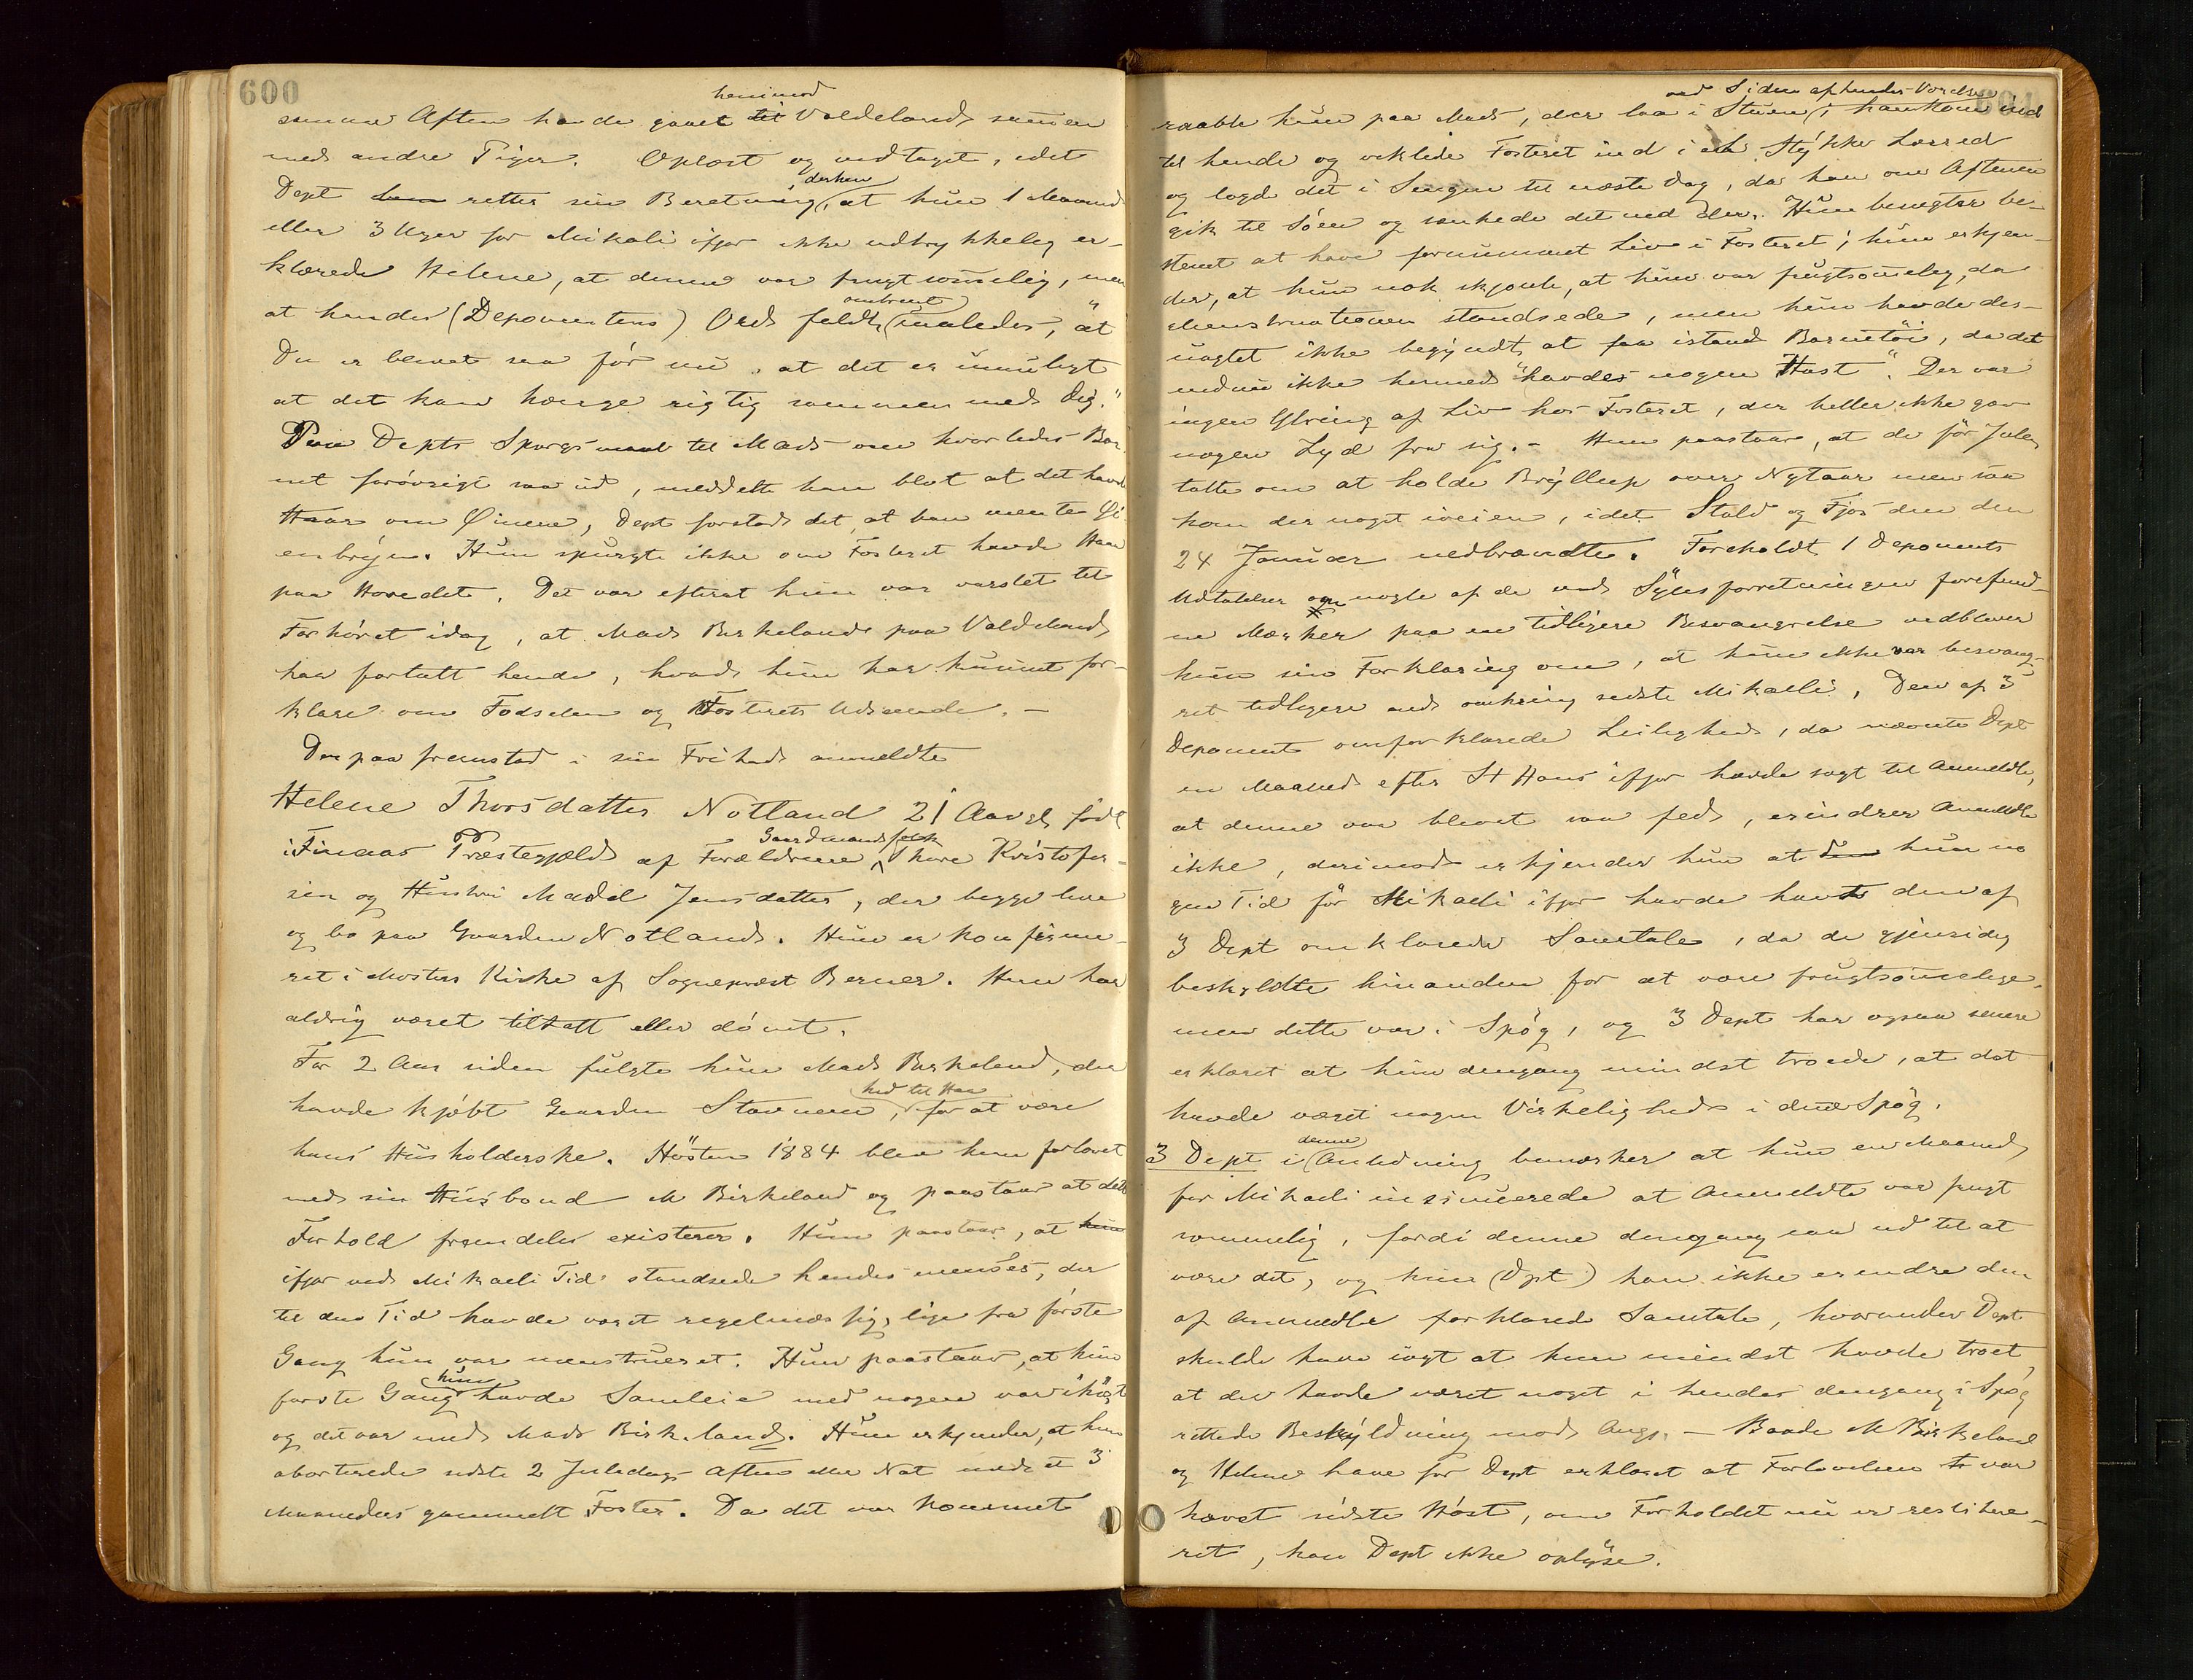 600
henimod
samme Aften havde gaaet til Valdelands sammen
med andre Piger. Oplæst og vedtaget, idet
derhen
Dept retter sin Beretning, at hun 1 Maaned
eller 3 Uger før Mikali ifjor ikke udtrykkelig er-
klærede Helene, at denne var frugtsommelig, men
omtrent
at hendes (Deponentens) Ord feldt saaledes, "at
Du er blevet saa før nu, at det er umuligt
at det kan hænge rigtig sammen med Dig."
Paa Depts Spørgsmaal til Mads om hvorledes Bar
net forøvrigt saa ud, meddelte han blot at det havde
Haar om Øinene, Dept forstod det, at han mente Øi
enbryn. Hun spurgte ikke om Fosteret havde Haar
paa Hovedet. Det var efterat hun var varslet til
Forhøret idag, at Mads Birkeland paa Valdelands
har fortalt hende, hvad hun har kunnet for-
klare om Fødselen og Fosterets Udseende. -
Derpaa fremstod i sin Frihed anmeldte
Helene Thorsdatter Notland 21 Aar gl, født
Gaardmandsfolk
i Finaas Præstegjæld af Forældrene Thore Kristofer-
sen og Hustru Madel Jensdatter, der begge leve
og bo paa Gaarden Notland. Hun er konfirme-
ret i Mosters Kirke af Sogneprest Berner. Hun har
aldrig været tiltalt eller dømt.
For 2 Aar siden fulgte hun Mads Birkeland, der
hid til Haa
havde kjøbt Gaarden Stavnem, for at være
hans Husholderske. Høsten 1884 blev hun forlovet
med sin Husbond M Birkeland og paastaar at dette
Forhold fremdeles existerer. Hun paastaar, at hun
ifjor ved Mikaeli Tid standsede hendes menses, der
til den Tid havde været regelmæssig, lige fra første
Gang hun var menstrueret. Hun paastaar, at hun
hun
første Gang havde Samleie med nogen var i høst
og det var med Mads Birkeland. Hun erkjender, at hun
aborterede sidste 2 Juledags Aften eller Nat med et 3
Maaneders gammelt Foster. Da det var kommet
ved Siden af hendes Værelse
601
raabte hun paa Mads, der laa i Stuen, han kom ind
til hende og viklede Fosteret ind i et Stykke Lærred
og lagde det i Sengen til næste Dag, da han om Aftenen
gik til Søen og sænkede det ned der. Hun benegter be-
stemt at have fornummet Liv i Fosteret; hun erkjen-
der, at hun nok skjønte, at hun var frugtsommelig, da
Menstruationen standsede, men hun havde des-
uagtet ikke begyndt at faa istand Barnetøi, da det
endnu ikke hermed "havdes nogen Hast". Der var
ingen Ytring af Liv hos Fosteret, der heller ikke gav
nogen Lyd fra sig. - Hun paastaar, at de før Jul
talte om at holde Bryllup over Nytaar men saa
kom der noget iveien, idet Stald og Fjøs den den
24 Januar nedbrændte. Foreholdt 1 Deponents
Udtalelser om nogle af de ved Synsforretningen forefund-
ne Mærker paa en tidligere Besvangrelse vedblever
hun sin Forklaring om, at hun ikke var besvang-
ret tidligere end omkring sidste Mikaeli. Den af 3
Deponent omforklarede Leilighed, da nævnte Dept
en Maaned efter St Hans ifjor havde sagt til Anmeldte,
at denne var blevet saa fed, erindrer Anmeldte
ikke, derimod erkjender hun at hun no
gen Tid før Mikaeli ifjor havde havt den af
3 Dept omklarede Samtale, da de gjensidig
beskyldte hinanden for at være frugtsommelige,
men dette var i Spøg, og 3 Dept har ogsaa senere
erklæret at hun dengang mindst troede, at det
havde været nogen Virkelighed i den Spøg.
denne
3 Dept i Anledning bemærker at hun en Maaned
før Mikaeli insinuerede at Anmeldte var frugt
sommelig, fordi denne dengang saa ud til at
være det, og hun (Dpt) kan ikke erindre den
af Anmeldte forklarede Samtale, hvorunder Dept
skulde have sagt at hun mindst havde troet
at der havde været noget i hendes dengang i Spøg
rettede Beskyldning mod Angj. - Baade M Birkeland
og Helene have for Dept erklæret at Forlovelsen var
hævet sidste Høst, om Forholdet nu er restitue-
ret, kan Dept ikke oplyse.